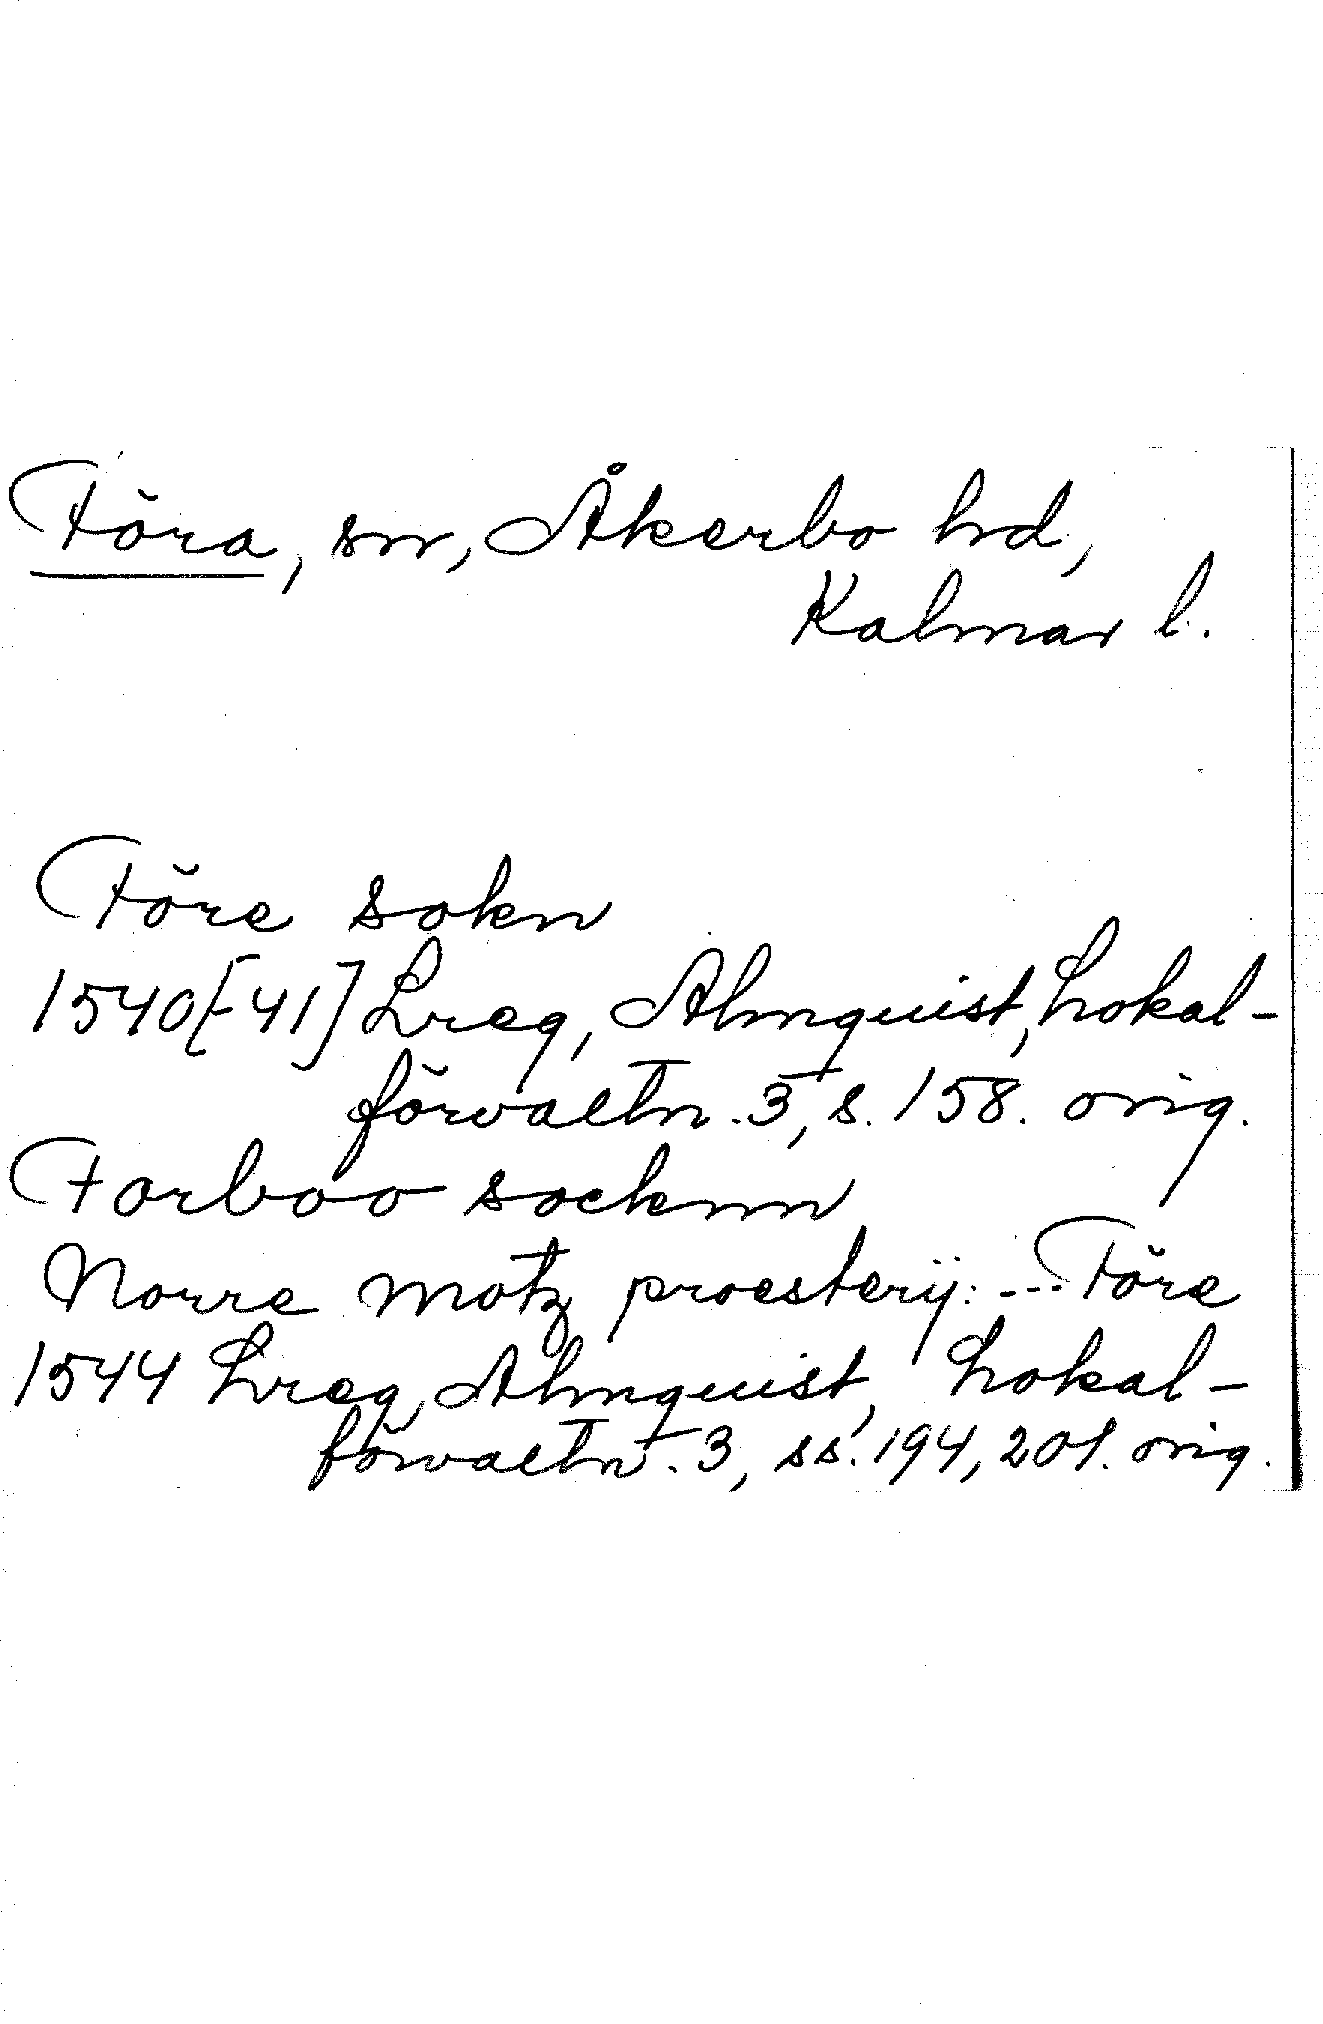 Föra, sn, Åkerbo hd,
Kalmar l.
Före sokn
1540[-41] Lreg, Almquist, Lokal-
förvaltn. 3, s. 158. orig.
Forboo socknn
Norre motz proesterij: ---Före
1544 Lreg, Almquist, Lokal-
förvaltn. 3, ss. 194, 201. orig.